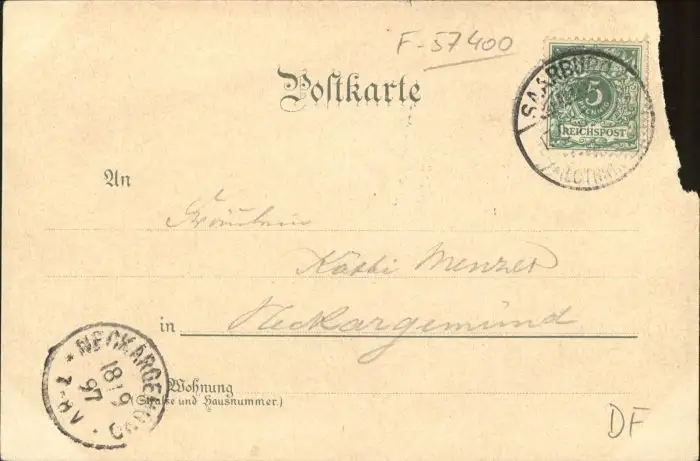 F-57400
Postkarte
SAARBURG
5
REICHSPOST
An
Fräulein
Käthi Menzer
in Neckargemünd
NECKARGEMÜND
18/9
97
7-8V
Wohnung
(Straße und Hausnummer.)
DF